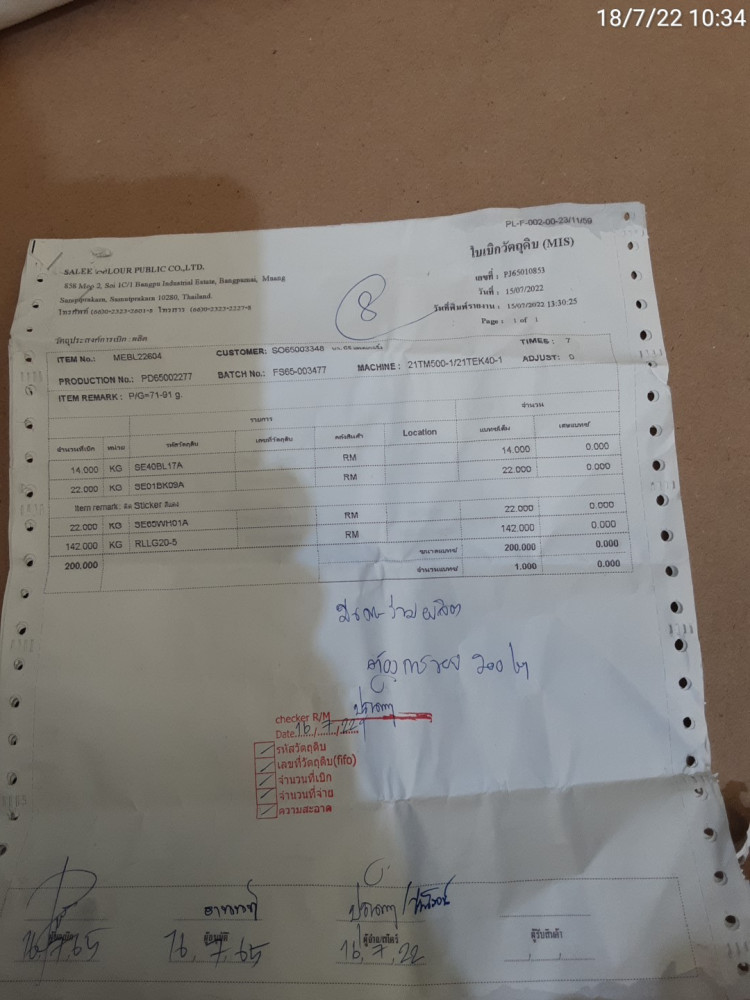 18/7/22 10:34
PL-F-002-00-23/11/59
ใบเบิกวัตถุดิบ (MIS)
SALEE COLOUR PUBLIC CO.,LTD.
858 Moo 2, Soi 1C/1 Bangpu Industrial Estate, Bangpumai, Muang
Samutprakarn, Samutprakarn 10280, Thailand.
โทรศัพท์ (66)0-2323-2601-8 โทรสาร (66)0-2323-2227-8
เลขที่ : PJ65010853
วันที่ : 15/07/2022
วันที่พิมพ์รายงาน : 15/07/2022 13:30:25
Page : 1 of 1
8
วัตถุประสงค์การเบิก : ผลิต
ITEM No.: MEBL22604 CUSTOMER: SO65003348 TIMES : 7
PRODUCTION No.: PD65002277 BATCH No.: FS65-003477 MACHINE : 21TM500-1/21TEK40-1 ADJUST: 0
ITEM REMARK : P/G=71-91 g.
รายการ จำนวน
จำนวนที่เบิก หน่วย รหัสวัตถุดิบ เลขที่วัตถุดิบ คลังสินค้า Location แบทช์เต็ม เศษแบทช์
14.000 KG SE40BL17A RM 14.000 0.000
22.000 KG SE01BK09A RM 22.000 0.000
Item remark: ติด Sticker สีแดง
22.000 KG SE65WH01A RM 22.000 0.000
142.000 KG RLLG20-5 RM 142.000 0.000
200.000 ขนาดแบทช์ 200.000 0.000
จำนวนแบทช์ 1.000 0.000
checker R/M
Date 16/7/22
รหัสวัตถุดิบ
เลขที่วัตถุดิบ(fifo)
จำนวนที่เบิก
จำนวนที่จ่าย
ความสะอาด
ผู้รับสินค้า
16,7,65 16,7,65 16,7,22